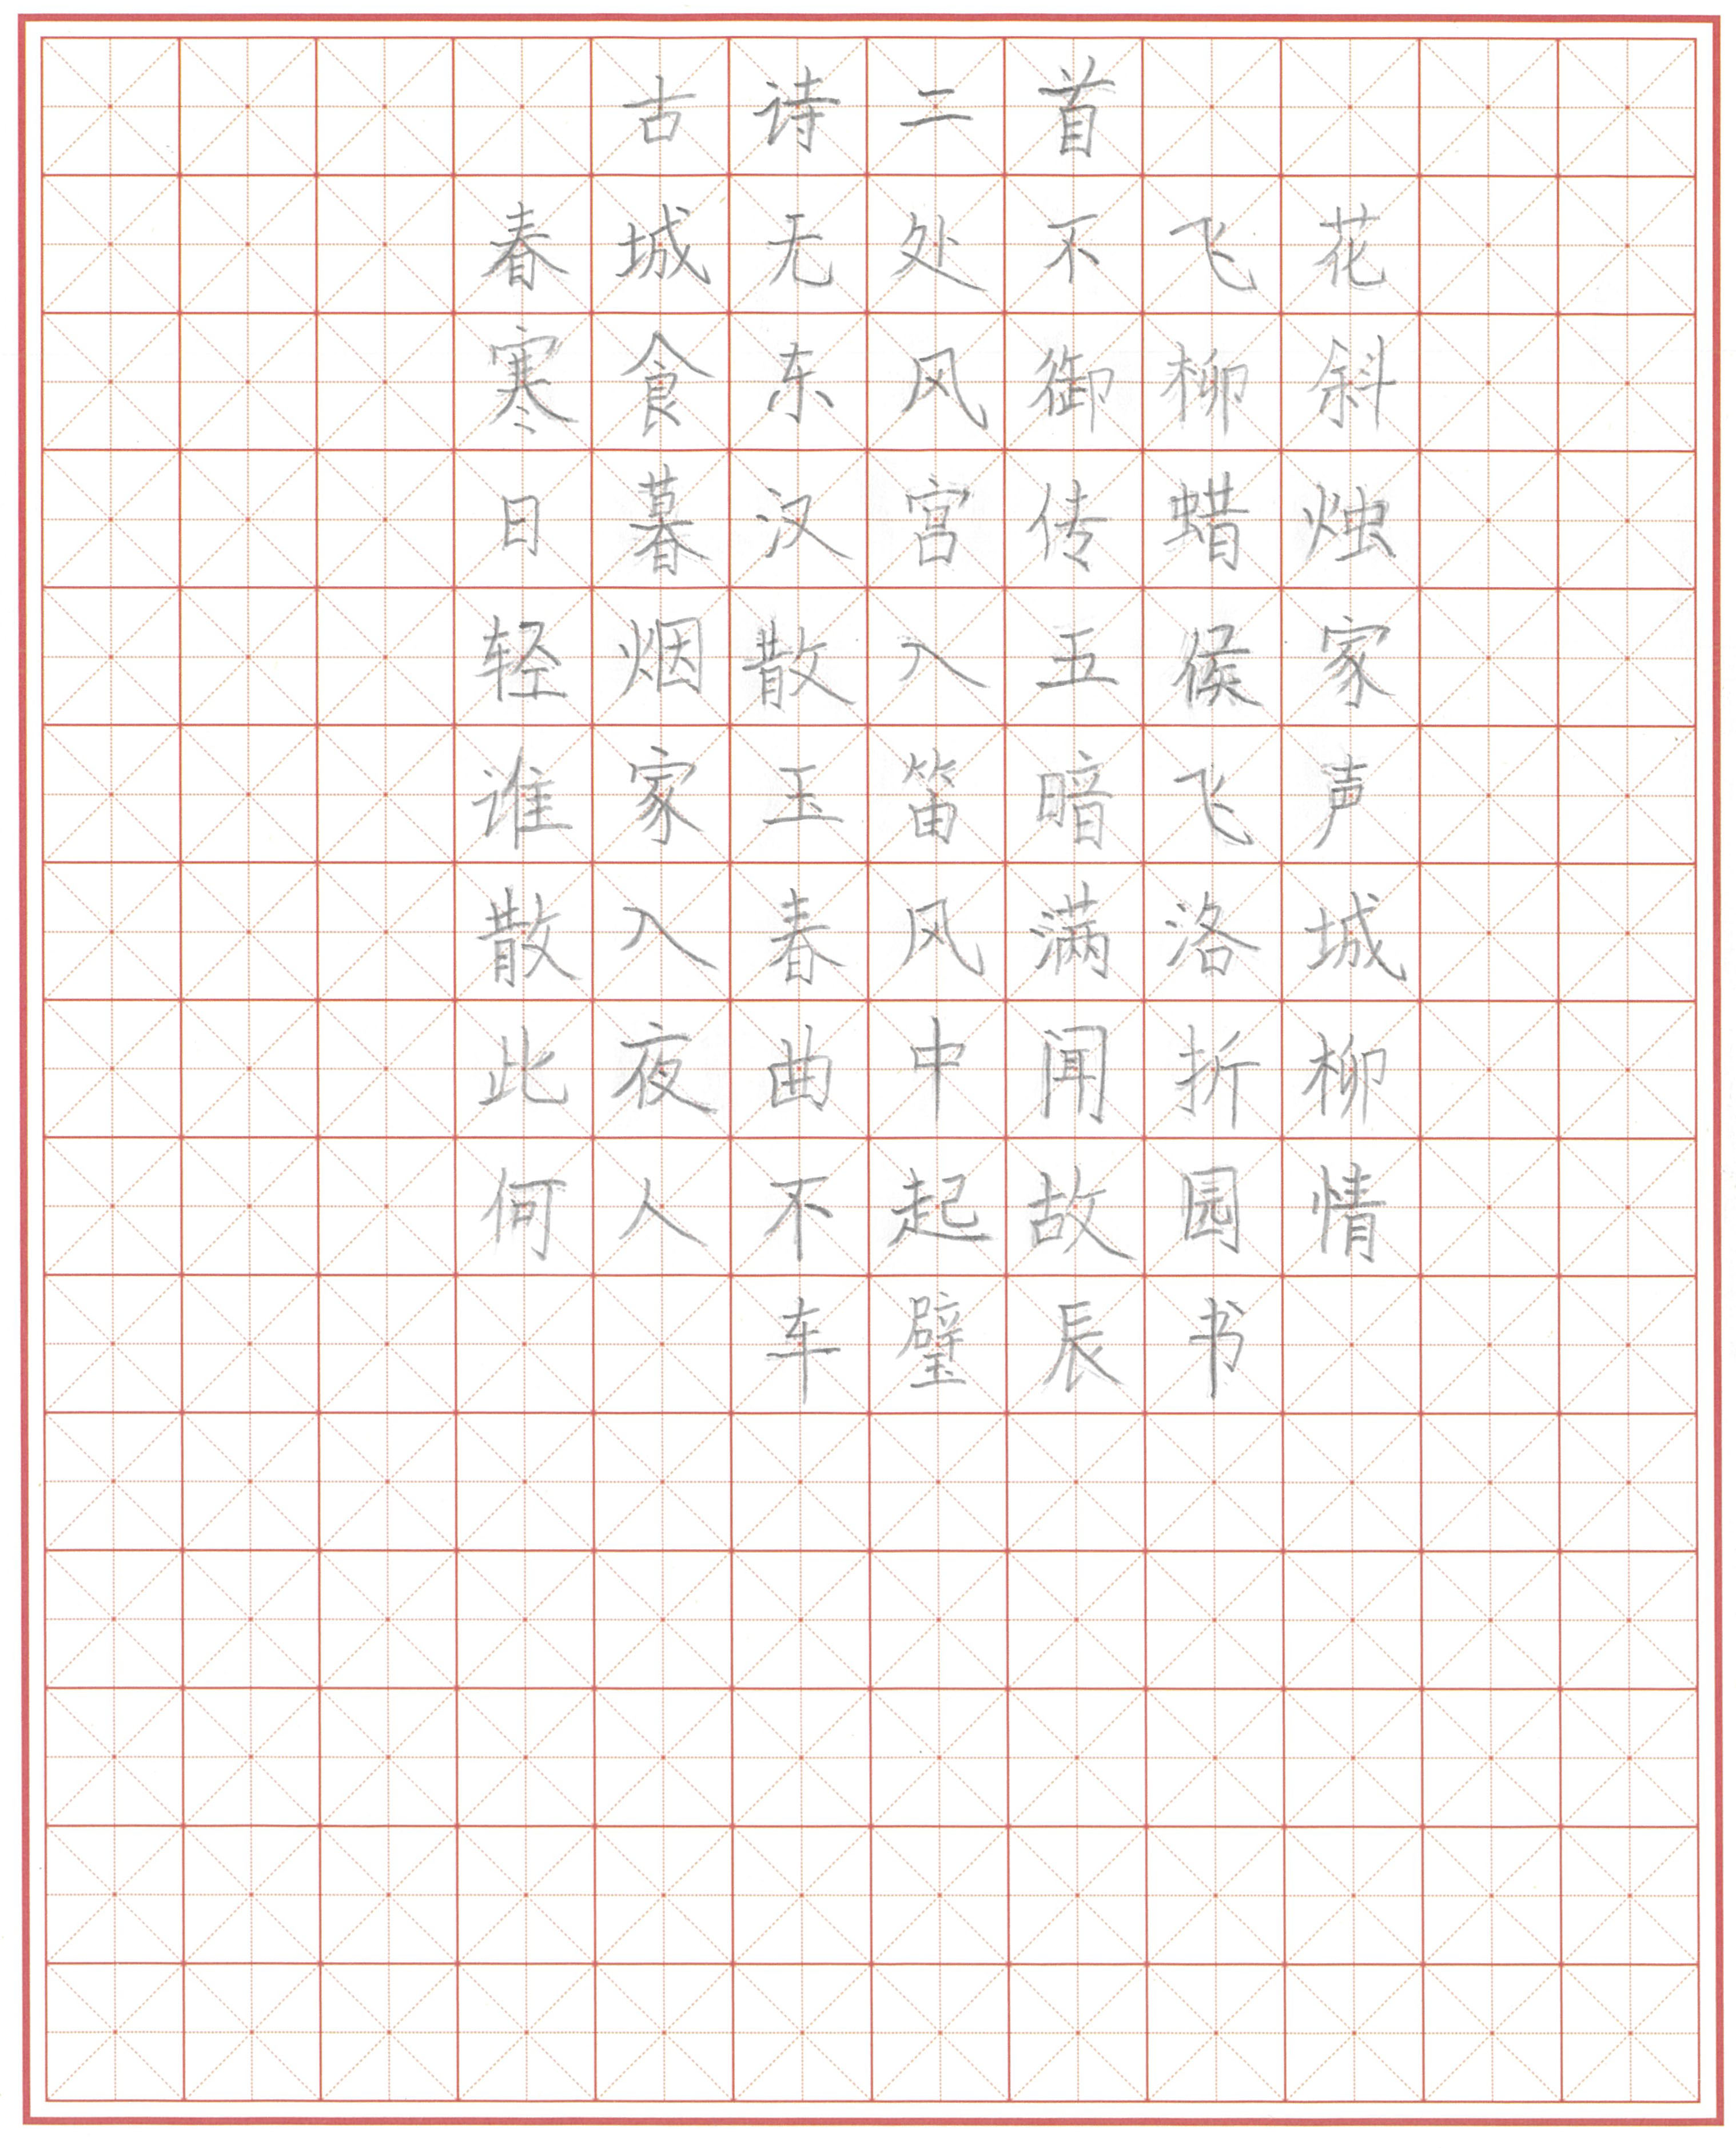 古诗二首
春城无处不飞花
寒食东风御柳斜
日暮汉宫传蜡烛
轻烟散入五侯家
谁家玉笛暗飞声
散入春风满洛城
此夜曲中闻折柳
何人不起故园情
车璧辰书